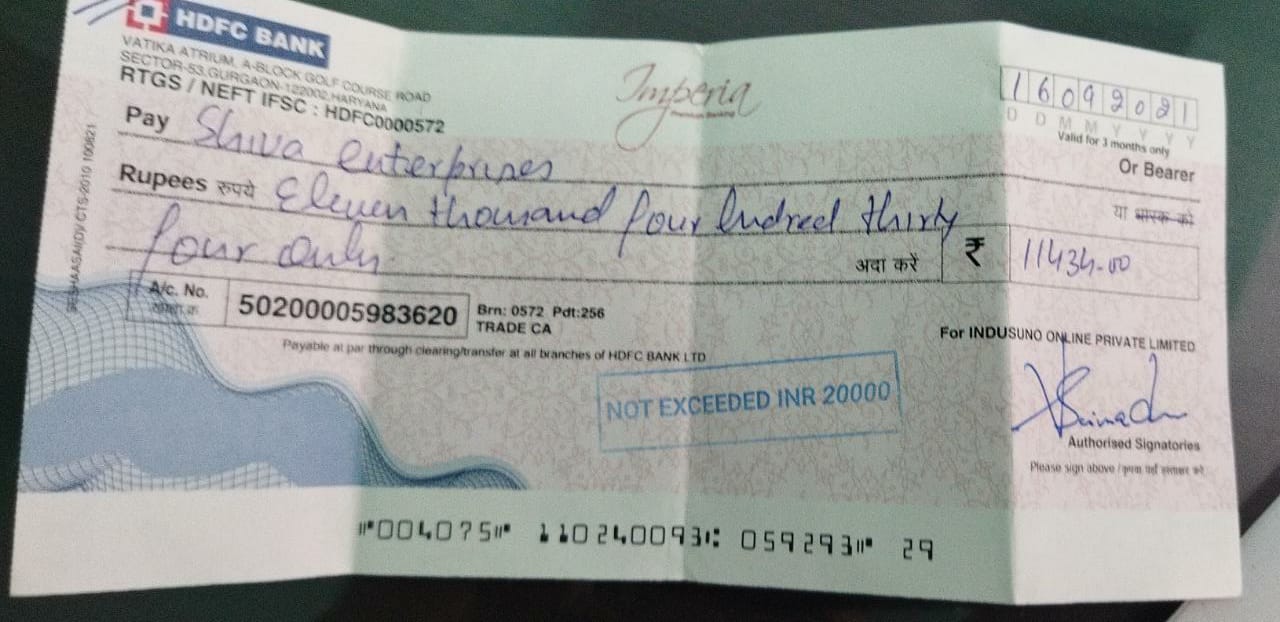 HDFC BANK
VATIKA ATRIUM, A-BLOCK GOLF COURSE ROAD
SECTOR-53, GURGAON-122002, HARYANA
RTGS / NEFT IFSC : HDFC0000572
Imperia
Premium Banking
16092021
D D M M Y Y Y Y
Valid for 3 months only
Pay Shiva enterprises
Or Bearer
Rupees रुपये Eleven thousand four hundred thirty
या धारक को
four only.
अदा करें ₹ 11434-00
A/c. No. 50200005983620 Brn: 0572 Pdt:256
TRADE CA
Payable at par through clearing/transfer at all branches of HDFC BANK LTD
For INDUSUNO ONLINE PRIVATE LIMITED
NOT EXCEEDED INR 20000
Authorised Signatories
Please sign above /
⑈004075⑈ 110240093⑆ 059293⑈ 29